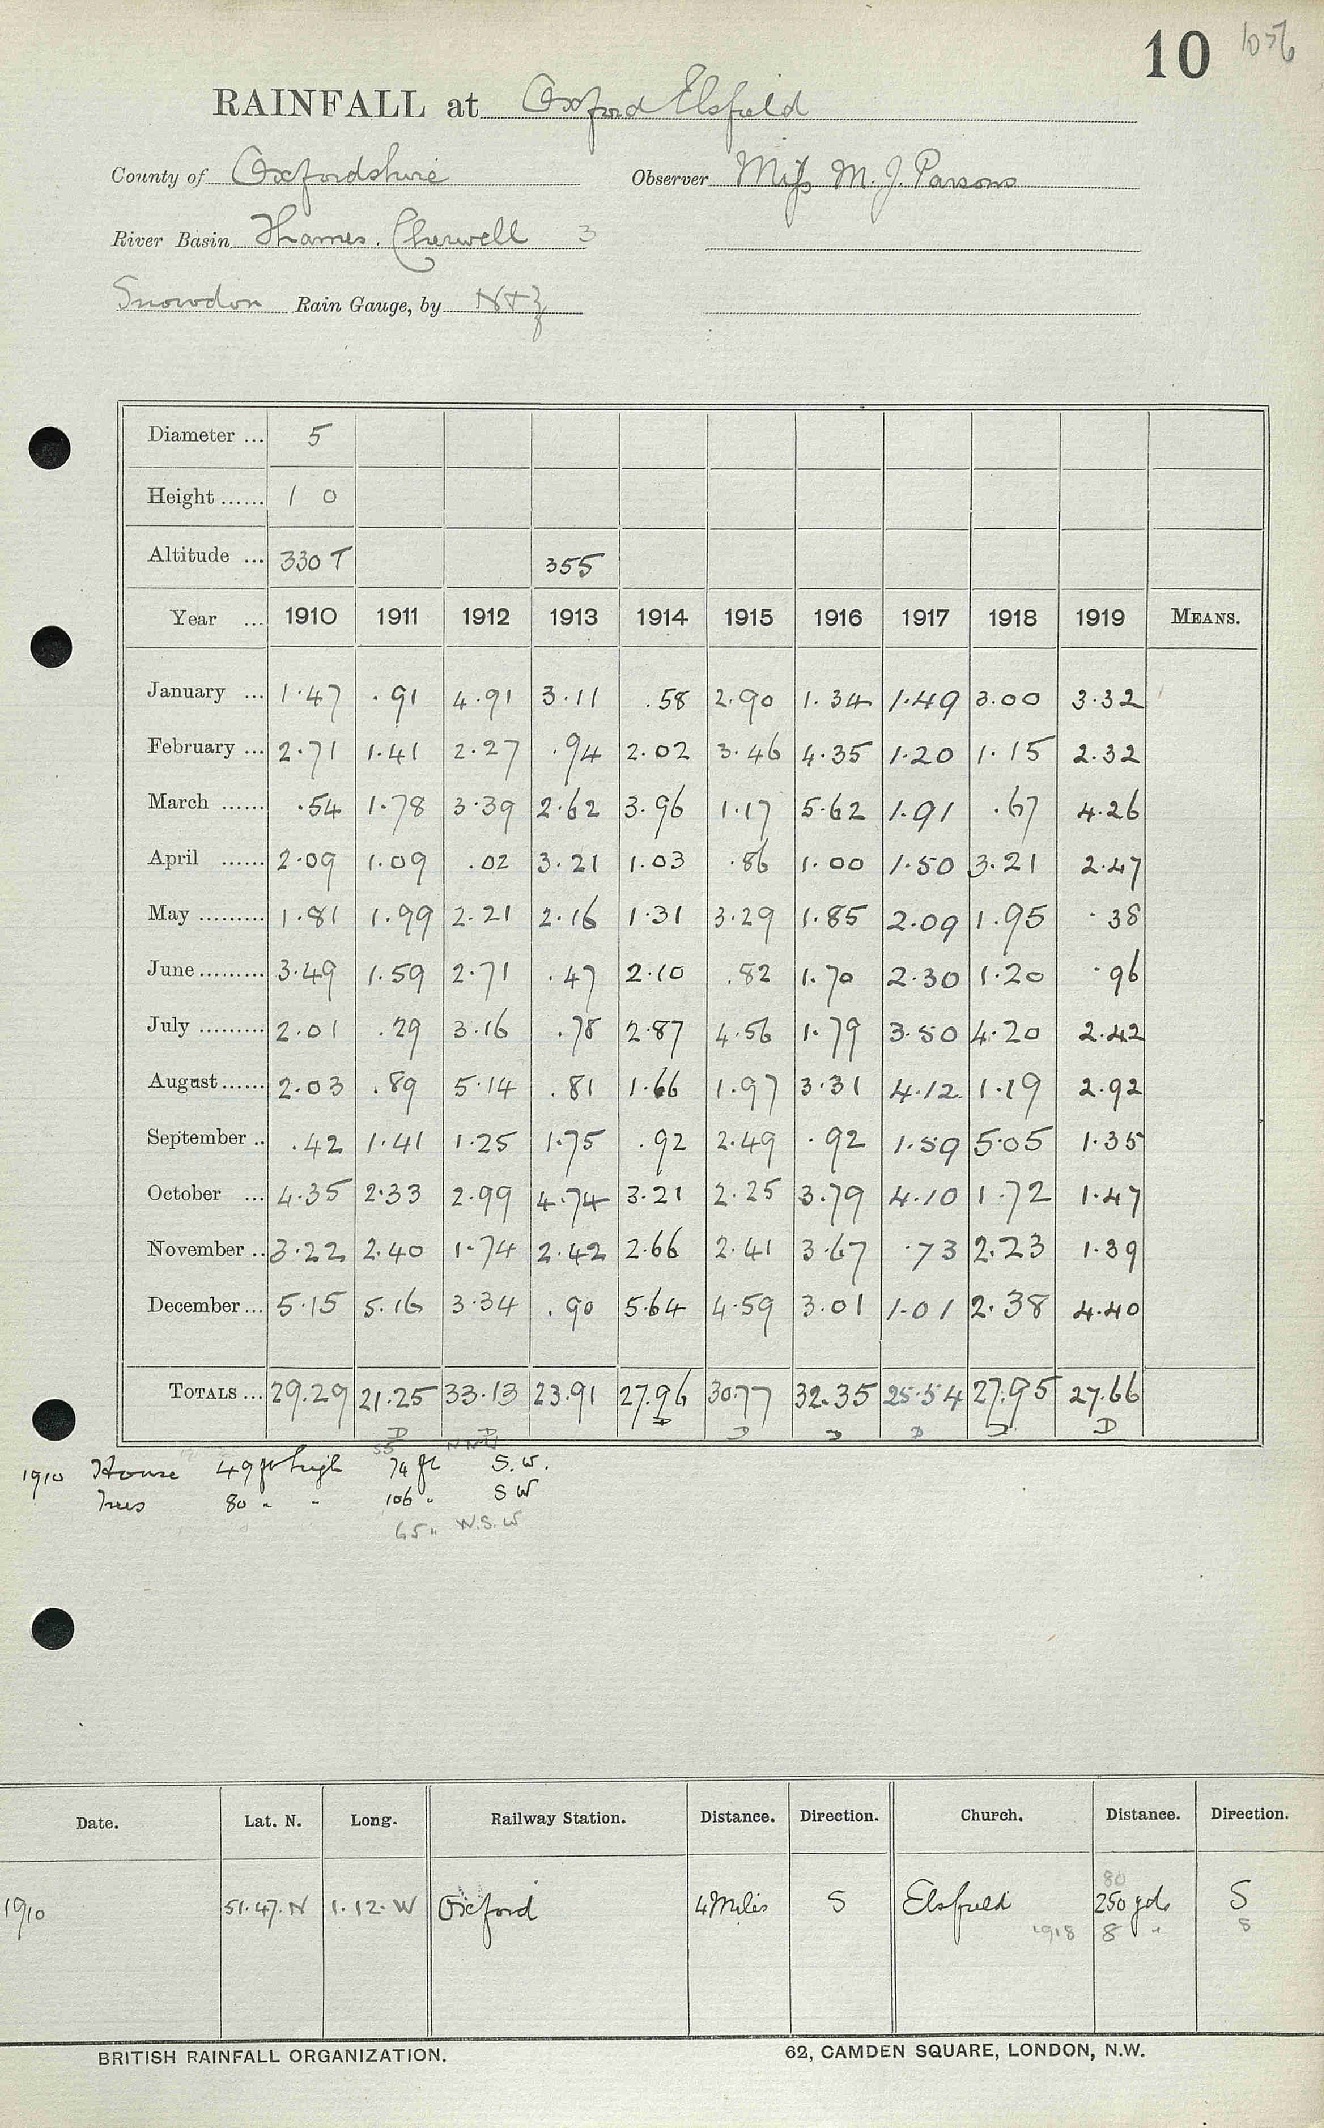 10 1056
RAINFALL at Oxford Elsfield
County of Oxfordshire Observer Miss M. J. Parsons
River Basin Thames. Cherwell 3
Snowdon Rain Gauge, by N+Z
Diameter ... 5
Height ...... 1 0
Altitude ... 330 T 355
Year ... 1910 1911 1912 1913 1914 1915 1916 1917 1918 1919 MEANS.
January ... 1.47 .91 4.91 3.11 .58 2.90 1.34 1.49 3.00 3.32
February ... 2.71 1.41 2.27 .94 2.02 3.46 4.35 1.20 1.15 2.32
March ...... .54 1.78 3.39 2.62 3.96 1.17 5.62 1.91 .67 4.26
April ...... 2.09 1.09 .02 3.21 1.03 .86 1.00 1.50 3.21 2.47
May ......... 1.81 1.99 2.21 2.16 1.31 3.29 1.85 2.09 1.95 .38
June ......... 3.49 1.59 2.71 .47 2.10 .82 1.70 2.30 1.20 .96
July ......... 2.01 .29 3.16 .78 2.87 4.56 1.79 3.50 4.20 2.42
August ...... 2.03 .89 5.14 .81 1.66 1.97 3.31 4.12 1.19 2.92
September .. .42 1.41 1.25 1.75 .92 2.49 .92 1.59 5.05 1.35
October ... 4.35 2.33 2.99 4.74 3.21 2.25 3.79 4.10 1.72 1.47
November .. 3.22 2.40 1.74 2.42 2.66 2.41 3.67 .73 2.23 1.39
December ... 5.15 5.16 3.34 .90 5.64 4.59 3.01 1.01 2.38 4.40
TOTALS ... 29.29 21.25 33.13 23.91 27.96 30.77 32.35 25.54 27.95 27.66
D D D D D D D D
55 NNW
1910 House 49 ft high 74 ft S.W.
Trees 80 " " 106 " SW
65 " W.S.W
Date. Lat. N. Long. Railway Station. Distance. Direction. Church. Distance. Direction.
80
1910 51.47.N 1.12.W Oxford 4 Miles S Elsfield 250 yds S
1918 8 " S
BRITISH RAINFALL ORGANIZATION. 62, CAMDEN SQUARE, LONDON, N.W.